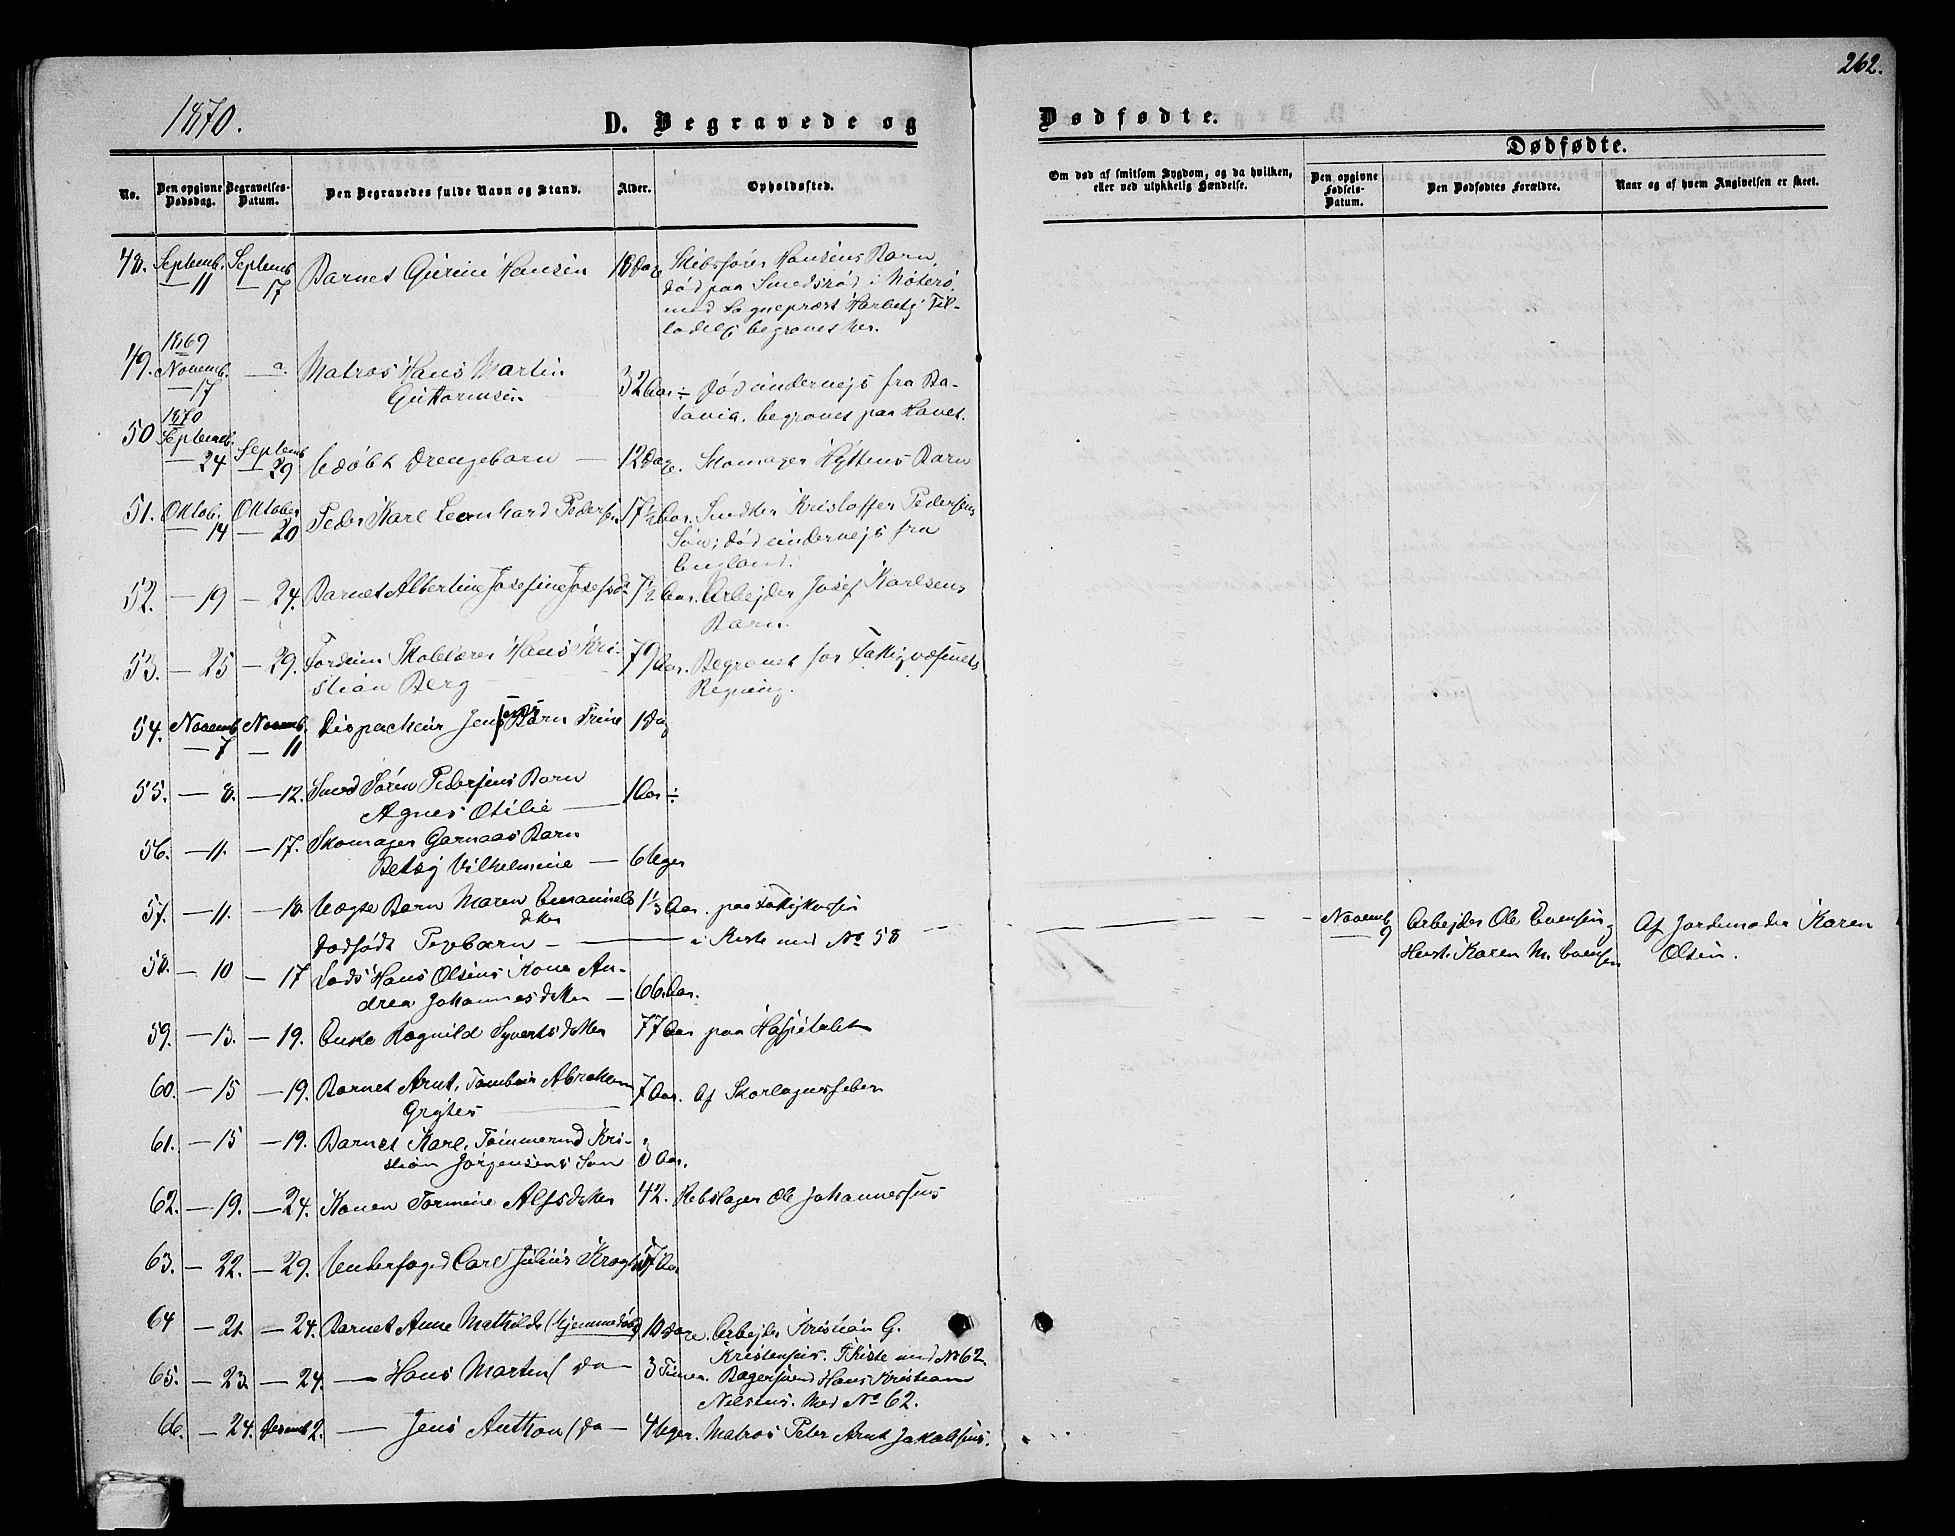 262.
1870.
D. Begravede og Dødfødte.
Dødfødte.
No.
Den opgivne Dødsdag.
Begravelses-Datum.
Den Begravedes fulde Navn og Stand.
Alder.
Opholdssted.
Om død af smitsom Sygdom, og da hvilken, eller ved ulykkelig Hændelse.
Den opgivne Fødsels-Datum.
Den Dødfødtes Forældre.
Naar og af hvem Angivelsen er skeet.
48. Septemb. 11 Septemb 17 Barnet Hansen 18 Dage Skibsfører Hansens Barn,
død paa Smedsrød i Nøterø,
med Sognepræst Til-
ladelse begravet her.
49. 1869 Novemb. 17 Matros Hans Martin
Guttormsen 32 Aar ÷ Død undervejs fra Ba-
tavia, begravet paa Havet.
50 1870 Septemb. 24 Septemb 29 Udøbt Drengebarn — 12 Dage. Skomager Hyttens Barn
51. Oktob. 14 Oktober 20 Peder Karl Leonhard Pedersen 17½ Aar. Kristoffer Pedersens
Søn; død undervejs fra
England.
52. — 19 — 24. Barnet Albertine Josefine Josefsd. 7½ Aar. Arbejder Josef Karlsens
Barn.
53. — 25 — 29. Fordum Skolelærer Hans Kri-
stian Berg 79 Aar. Begravet for Fattigvæsenets
Regning.
54. Novemb. 7 Novemb. 11 Dispacheur Barn Trine 1 Dag
55. — 8. — 12. Smed Søren Pedersens Barn
Agnes Otilie — 1 Aar ÷
56. — 11. — 17. Skomager Garnaas Barn
Betsy Vilhelmine — 6 Uger
57. — 11. — 18. Uægte Barn Maren Emanuels
dtter 1⅓ Aar. paa Fattighuset
Dødfødt Pigebarn — i Kiste med No 58 — Novemb 9 Arbejder Ole Evensen og Af Jordemoder Karen
Hust. Karen M. Evensen Olsen.
58. — 10 — 17 Lods Hans Olsens Kone An-
drea Johannesdatter — 66 Aar.
59. — 13. — 19. Enke Ragnild Syvertsdatter 77 Aar paa Hospitalet
60. — 15 — 19. Barnet Arnt, Abraham
Grytes 7 Aar. Af Skarlagensfeber
61. — 15 — 19. Barnet Karl, Tømmermd Kri-
stian Jørgensens Søn 3 Aar.
62. — 19. — 24. Konen Tormine Alfsdatter 42. Rebslager Ole Johannessens
63. — 22. — 29. Underfoged Carl Julius Krogh 57 Aar
64 — 21. — 24. Barnet Anne Mathilde (hjemmedøbt) 10 Dage. Arbejder Kristian G.
Kristensens. I Kiste med No 62.
65. — 23. — 24. — Hans Martin ( do — 3 Timer. Bagersvend Hans Kristian
Nilsens. Med No 62.
66. — 24. Decemb 2. — Jens Anthon ( do — 4 Uger. Matros Peter Arnt Jakobsens.